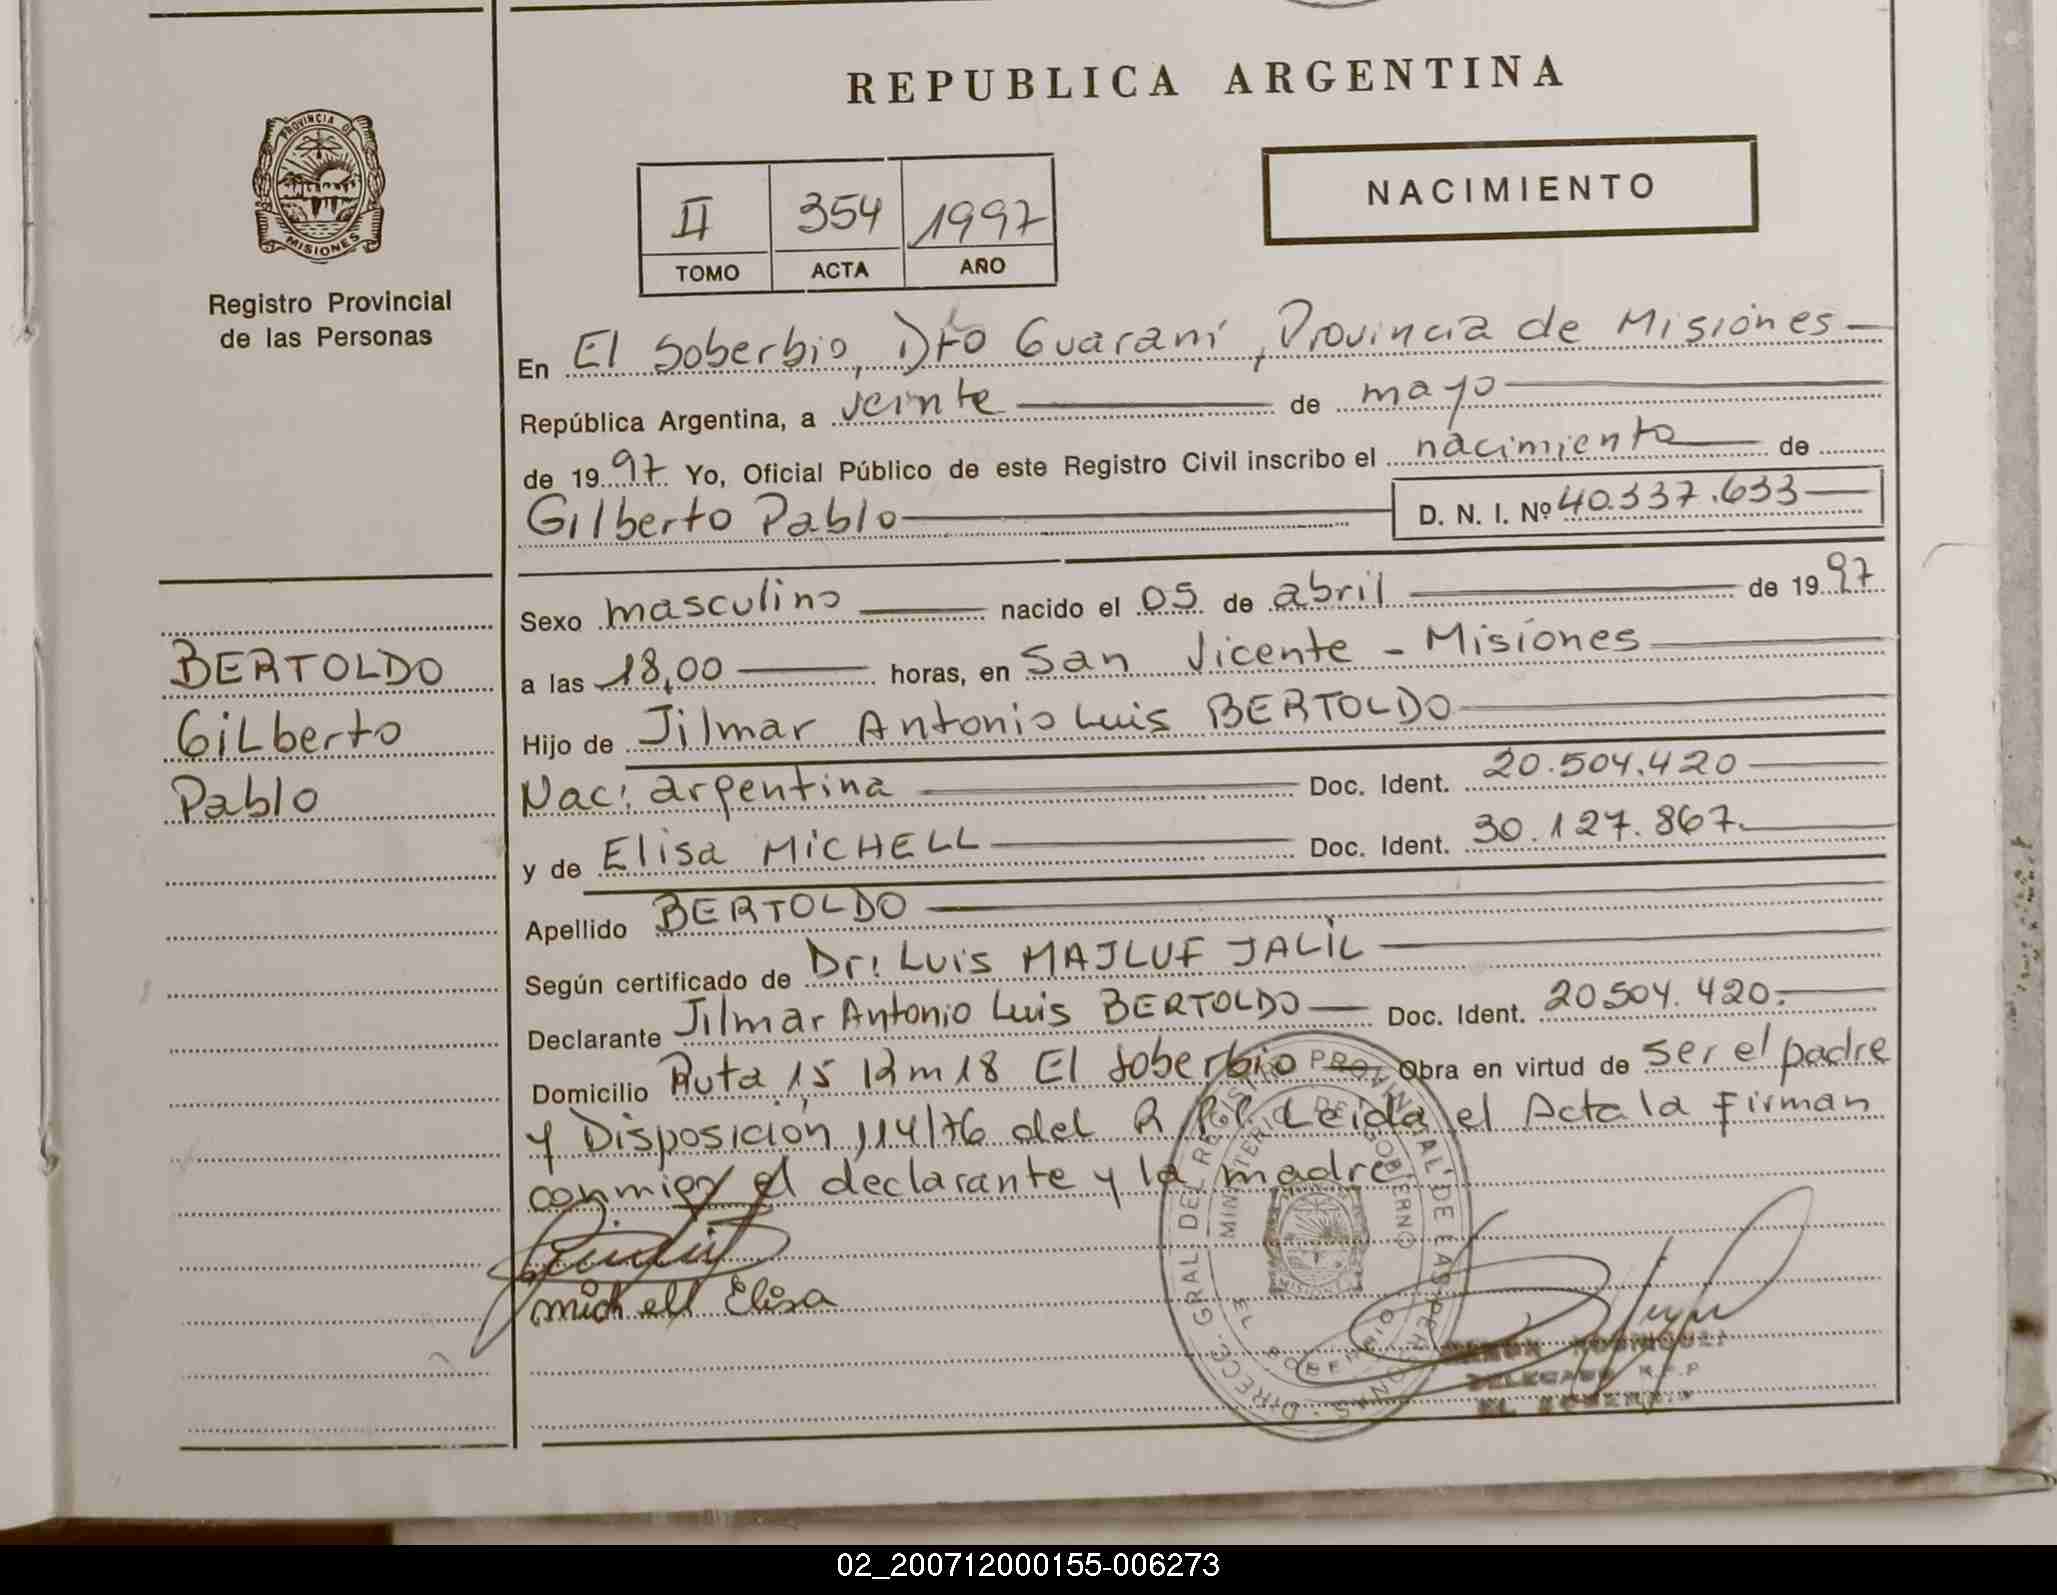 REPUBLICA ARGENTINA
PROVINCIA DE
MISIONES
Registro Provincial
de las Personas
NACIMIENTO
II 354 1997
TOMO ACTA AÑO
En El Soberbio, Dto Guaraní, Provincia de Misiones
República Argentina, a veinte de mayo
de 1997 Yo, Oficial Público de este Registro Civil inscribo el nacimiento de
Gilberto Pablo D. N. I. Nº 40.337.633
Sexo masculino nacido el 05 de abril de 1997
a las 18,00 horas, en San Vicente - Misiones
Hijo de Jilmar Antonio Luis BERTOLDO
Nac: argentina Doc. Ident. 20.504.420
y de Elisa MICHELL Doc. Ident. 30.127.867.
Apellido BERTOLDO
Según certificado de Dr: Luis MAJLUF JALIL
Declarante Jilmar Antonio Luis BERTOLDO Doc. Ident. 20504.420.
Domicilio Ruta 15 Km 18 El Soberbio Obra en virtud de ser el padre
y Disposición 114/76 del R.P.P. Leída el Acta la firman
conmigo el declarante y la madre
michell Elisa
BERTOLDO
Gilberto
Pablo
DIRECC. GRAL DEL REGISTRO PROVINCIAL DE LAS PERSONAS
MINISTERIO DE GOBIERNO
EL SOBERBIO
RAMON RODRIGUEZ
DELEGADO R.P.P
EL SOBERBIO
02_200712000155-006273